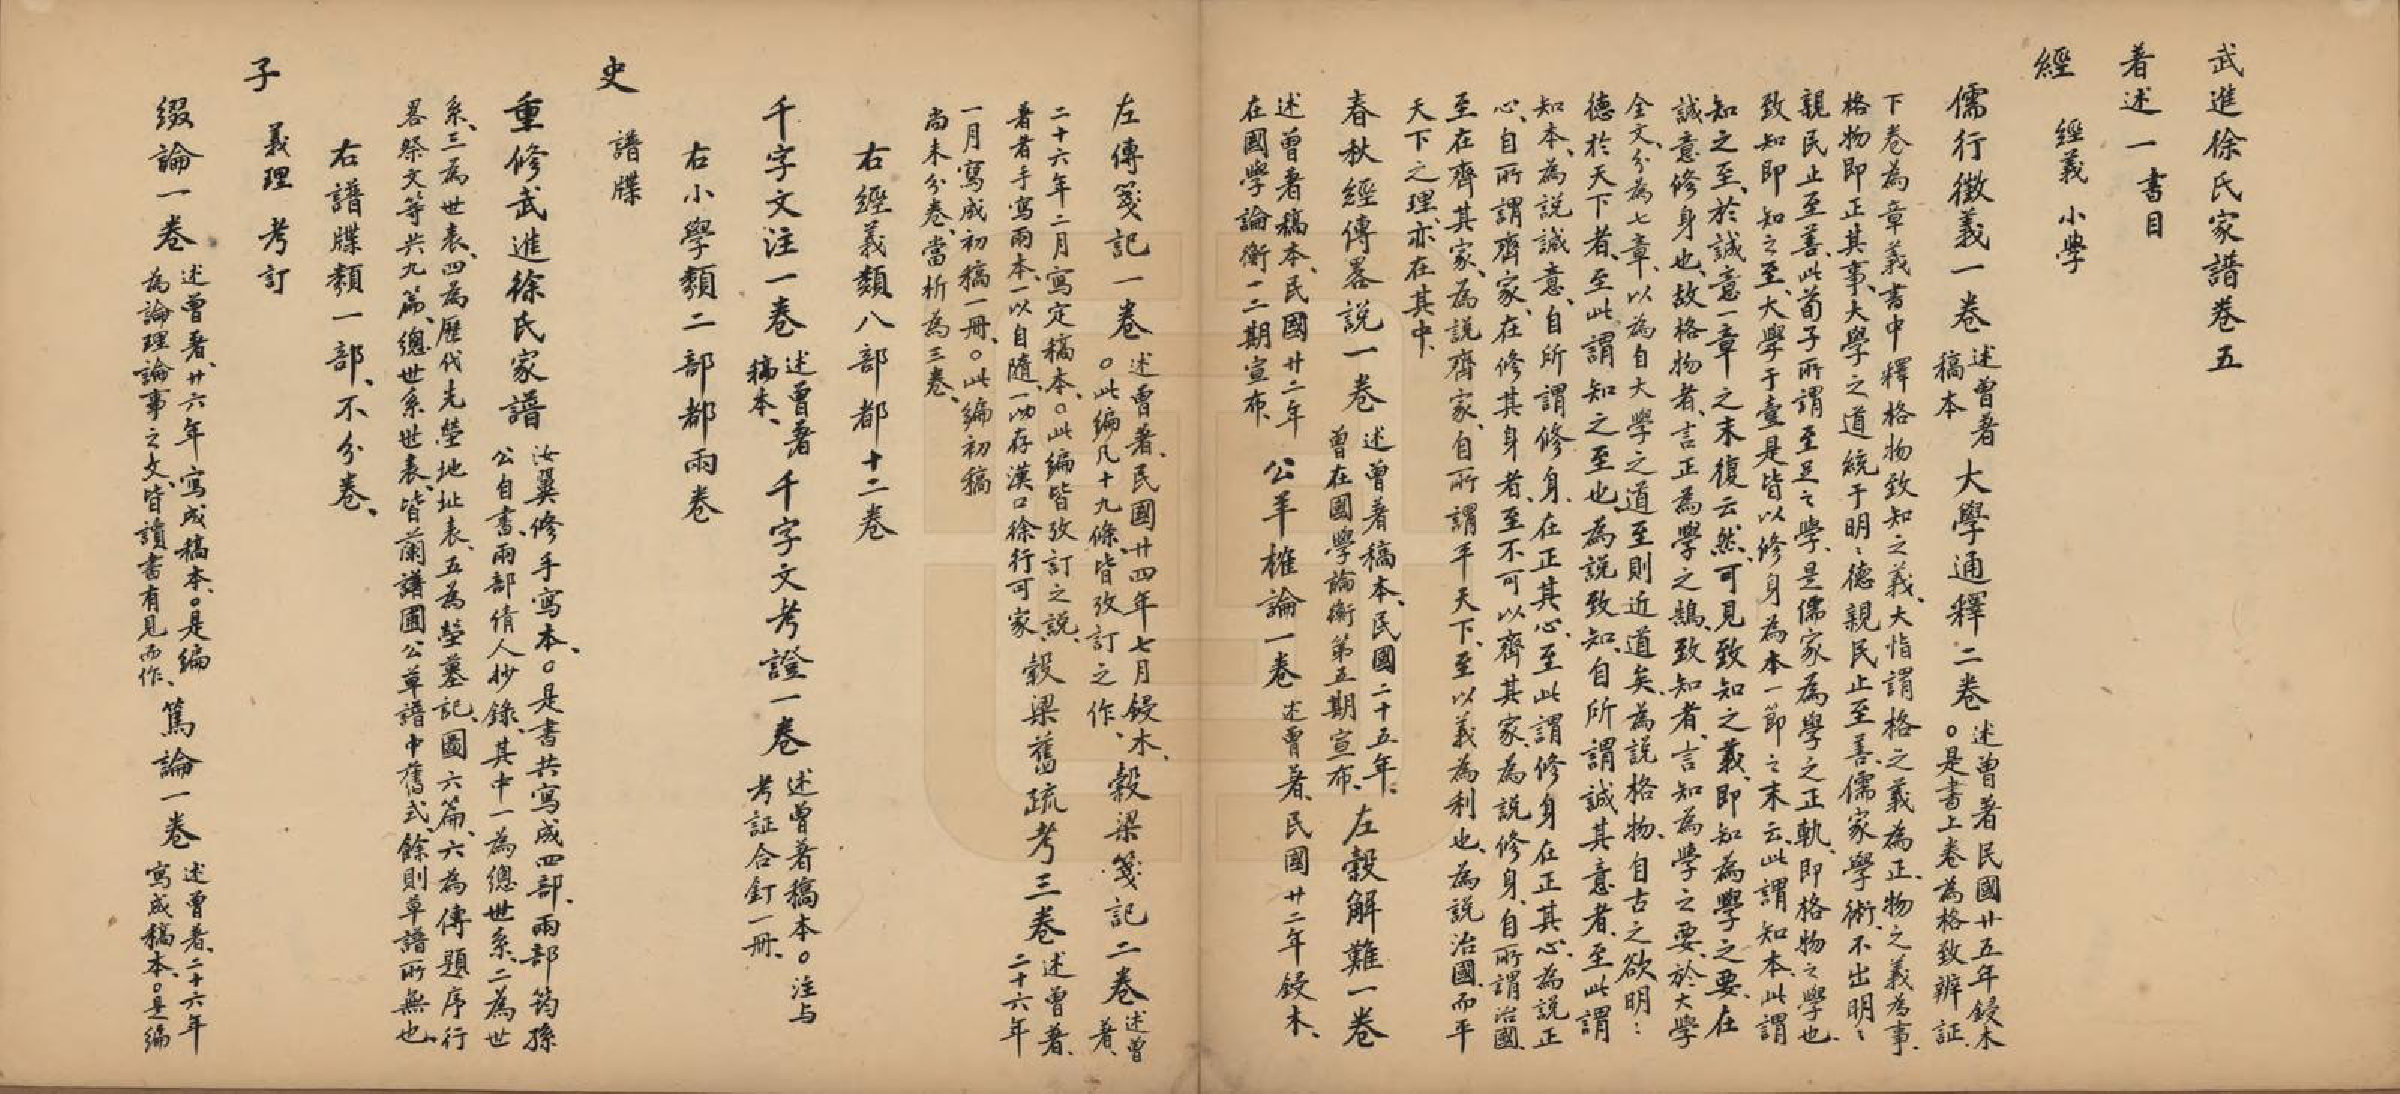 武進徐氏家譜卷五
著述一 書目
經 經義 小學
儒行徵義一卷 述曾著稿本 大學通釋二卷 述曾著民國廿五年鋟木○是書上卷為格致辨証、
下卷為章義書中釋格物致知之義、大恉謂格之義為正、物之義為事、
格物即正其事、大學之道統于明〻德親民止至善、儒家學術、不出明〻
親民止至善、此荀子所謂至足之學、是儒家為學之正軌、即格物之學也、
致知即知之至、大學于壹是皆以修身為本一節之末云、此謂知本、此謂
知之至、於誠意一章之末復云然、可見致知之義、即知為學之要、在
誠意修身也、故格物者、言正為學之鵠、致知者、言知為學之要、於大學
全文、分為七章、以為自大學之道至則近道矣、為說格物、自古之欲明〻
德於天下者、至此謂知之至也、為說致知、自所謂誠其意者、至此謂
知本、為說誠意、自所謂修身、在正其心、至此謂修身在正其心、為說正
心、自所謂齊家、在修其身者、至不可以齊其家、為說修身、自所謂治國、
至在齊其家、為說齊家、自所謂平天下、至以義為利也、為說治國、而平
天下之理、亦在其中、
春秋經傳畧說一卷 述曾著稿本、民國二十五年、曾在國學論衡第五期宣布、 左穀解難一卷
述曾著稿本、民國廿二年在國學論衡一二期宣布、 公羊榷論一卷 述曾著、民國廿二年鋟木、
左傳箋記一卷 述曾著、民國廿四年七月鋟木、○此編凡十九條、皆攷訂之作、 穀梁箋記二卷 述曾著、
二十六年二月寫定稿本、○此編皆攷訂之說、著者手寫兩本、一以自隨、一以存漢口徐行可家 穀梁舊疏考三卷 述曾著、二十六年
一月寫成初稿一冊、○此編初稿
尚未分卷、當析為三卷、
右經義類八部都十二卷
千字文注一卷 述曾著稿本、 千字文考證一卷 述曾著稿本○注与考証合釘一冊、
右小學類二部都兩卷
史 譜牒
重修武進徐氏家譜 汝翼修手寫本、○是書共寫成四部、兩部筠孫
公自書、兩部倩人抄錄、其中一為總世系、二為世
系、三為世表、四為歷代先塋地址表、五為塋墓記、圖六篇、六為傳題序行
畧祭文等共九篇、總世系世表、皆蘭譜圃公草譜中舊式、餘則草譜所無也、
右譜牒類一部、不分卷、
子 義理 考訂
綴論一卷 述曾著、廿六年寫成稿本、○是編為論理論事之文、皆讀書有見而作、 篤論一卷 述曾著、二十六年寫成稿本、○是編